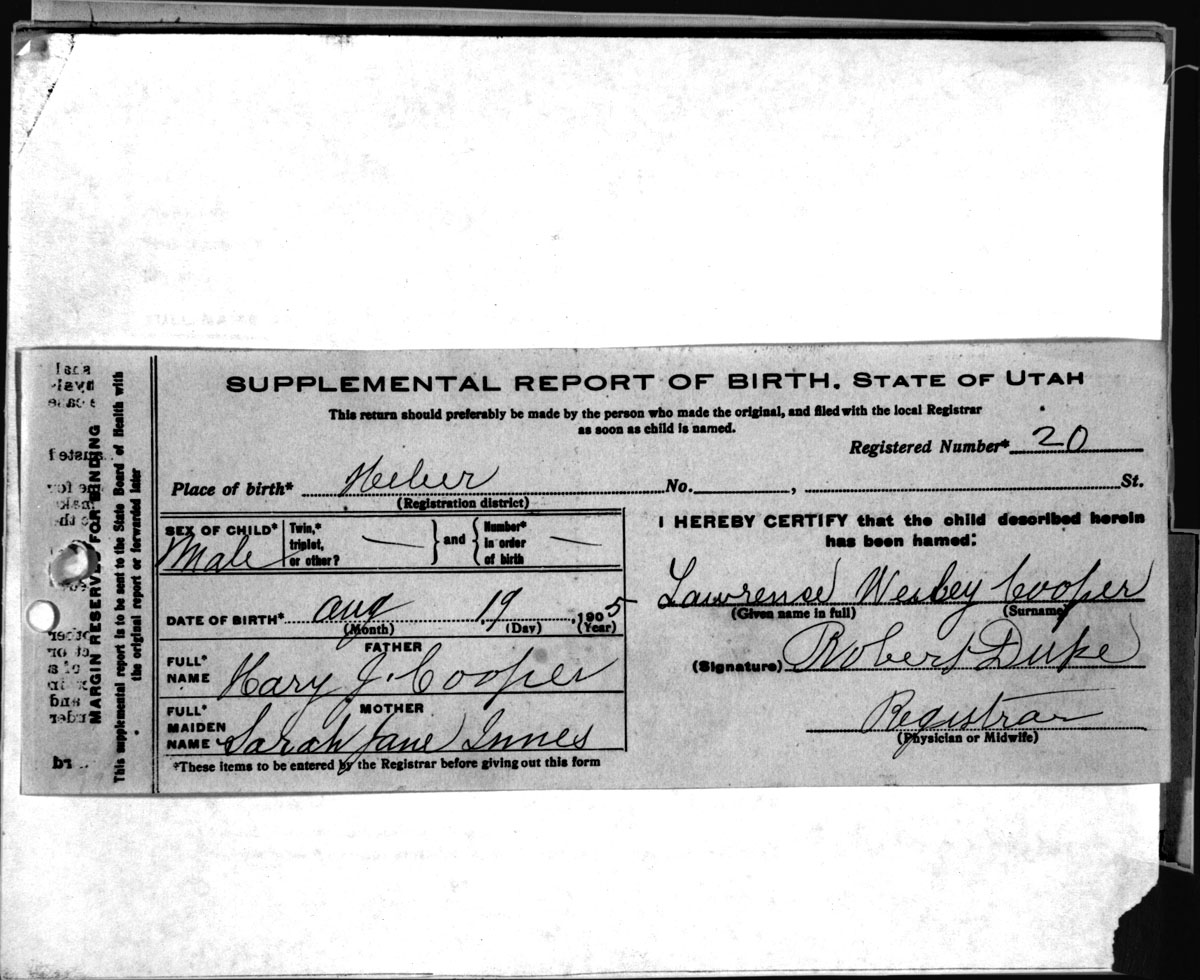 SUPPLEMENTAL REPORT OF BIRTH. STATE OF UTAH
This return should preferably be made by the person who made the original, and filed with the local Registrar
as soon as child is named.
Registered Number* 20
Place of birth* Heber No. , St.
(Registration district)
SEX OF CHILD* Male
Twin,*
triplet,
or other? —
} and {
Number*
in order
of birth —
DATE OF BIRTH* Aug 19, 1905
(Month) (Day) (Year)
FATHER
FULL*
NAME Hary J. Cooper
MOTHER
FULL*
MAIDEN
NAME Sarah Jane Innes
*These items to be entered by the Registrar before giving out this form
I HEREBY CERTIFY that the child described herein
has been named:
Lawrense Wesley Cooper
(Given name in full) (Surname)
(Signature) Robert Duke
Registrar
(Physician or Midwife)
MARGIN RESERVED FOR BINDING
This supplemental report is to be sent to the State Board of Health with
the original report or forwarded later